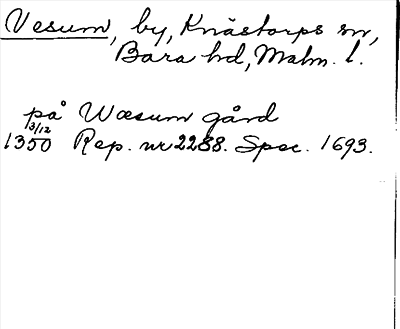 Vesum, by, Knästorps sn,
Bara hd, Malm. l.
på Wæsum gård
3/12
1350 Rep. nr 2288. Spec. 1693.